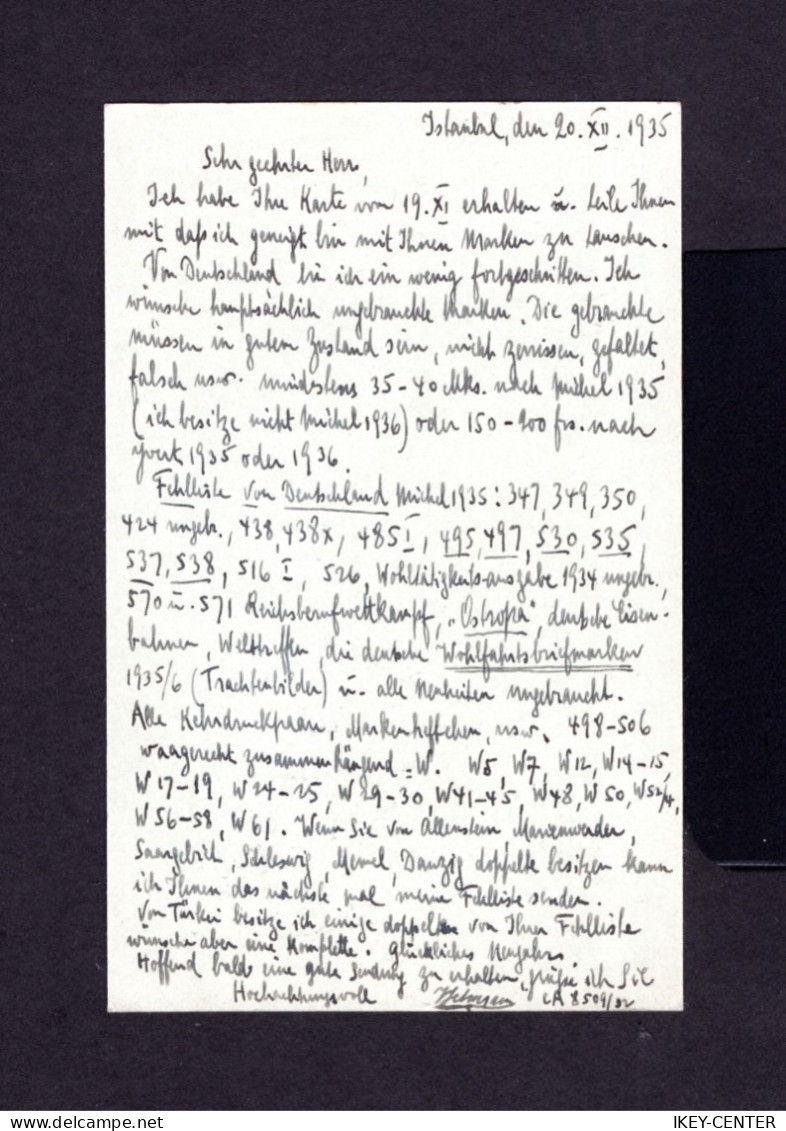 Istanbul, den 20. XII. 1935
Sehr geehrter Herr,
Ich habe Ihre Karte vom 19. XI erhalten u. teile Ihnen
mit daß ich geneigt bin mit Ihnen Marken zu tauschen.
Von Deutschland bin ich ein wenig fortgeschritten. Ich
wünsche hauptsächlich ungebrauchte Marken. Die gebrauchte
müssen in gutem Zustand sein, nicht zerrissen, gefaltet,
falsch usw. mindestens 35-40 Mks. nach Michel 1935
(ich besitze nicht Michel 1936) oder 150-200 frs. nach
Yvert 1935 oder 1936.
Fehlliste von Deutschland Michel 1935: 347, 349, 350,
424 ungebr., 438, 438x, 485 I, 495, 497, 530, 535,
537, 538, 516 I, 526, Wohltätigkeitsausgabe 1934 ungebr.,
570 u. 571 Reichsberufwettkampf, "Ostropa", deutsche Eisen-
bahnen, Welttreffen, die deutsche Wohlfahrtsbriefmarken
1935/6 (Trachtenbilder) u. alle Neuheiten ungebraucht.
Alle Kehrdruckpaare, Markenheftchen, usw. 498-506
waagerecht zusammenhängend = W. W5, W7, W12, W14-15,
W17-19, W24-25, W29-30, W41-45, W48, W50, W52/4,
W56-58, W61. Wenn Sie von Allenstein Marienwerder,
Saargebiet, Schleswig, Memel, Danzig doppelte besitzen kann
ich Ihnen das nächste mal meine Fehlliste senden.
Von Türkei besitze ich einige doppelten von Ihrer Fehlliste
wünsche aber eine komplette. Glückliches Neujahr.
Hoffend bald eine gute Sendung zu erhalten, grüße ich Sie
Hochachtungsvoll LA 8509/32
IKEY-CENTER